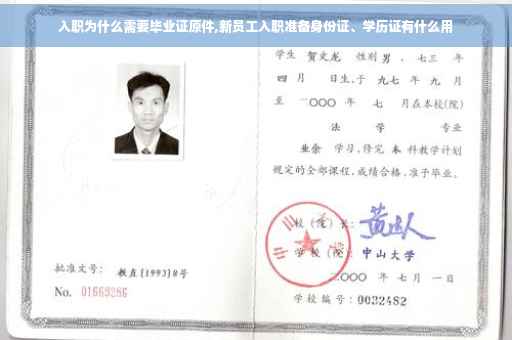 入职为什么需要毕业证原件,新员工入职准备身份证、学历证有什么用
学生 贺文龙 性别 男 、七三 年
四 月 日生,于 九七 年 九 月
至 二〇〇〇 年 七 月在本校(院)
法 学 专业
业余 学习,修完 本 科教学计划
规定的全部课程,成绩合格,准予毕业。
校(院)长:
学校(院): 中山大学
二〇〇〇 年 七 月 一 日
批准文号: 教直[1993]8号
No. 01669286
学校编号: 0032482